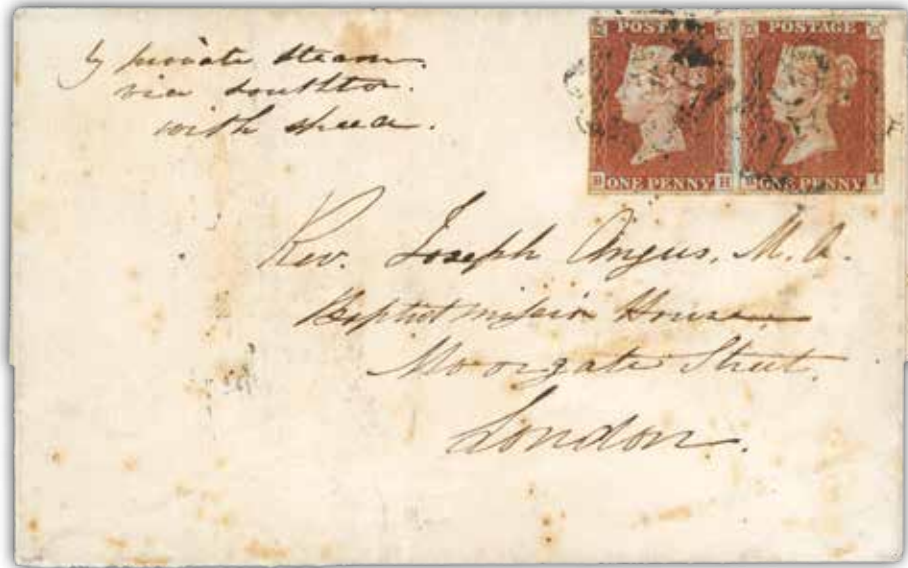 by private steam.
via southton.
with speed.
POSTAGE POSTAGE
B ONE PENNY H ONE PENNY I
Rev. Joseph Angus, M. A.
Baptist mission House
Moorgate Street.
London.